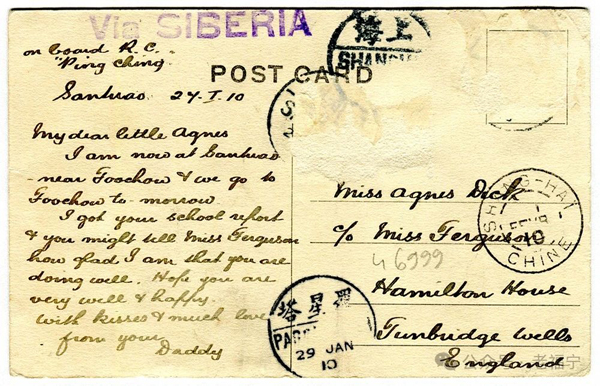 Via SIBERIA
on board R.C.
"Ping Ching
POST CARD
Santuao 27-I-10
My dear little Agnes
I am now at Santuao
near Foochow & we go to
Foochow to-morrow
I got your school report
& you might tell Miss Ferguson
how glad I am that you are
doing well. Hope you are
very well & happy.
With kisses & much love
from your
Daddy
上海
SHANGHAI
Miss Agnes Dick
c/o Miss Ferguson
46999
Hamilton House
Tunbridge Wells
England
SHANG-HAI
CHINE
10
塔星羅
29 JAN
10
公众号 · 老福宁